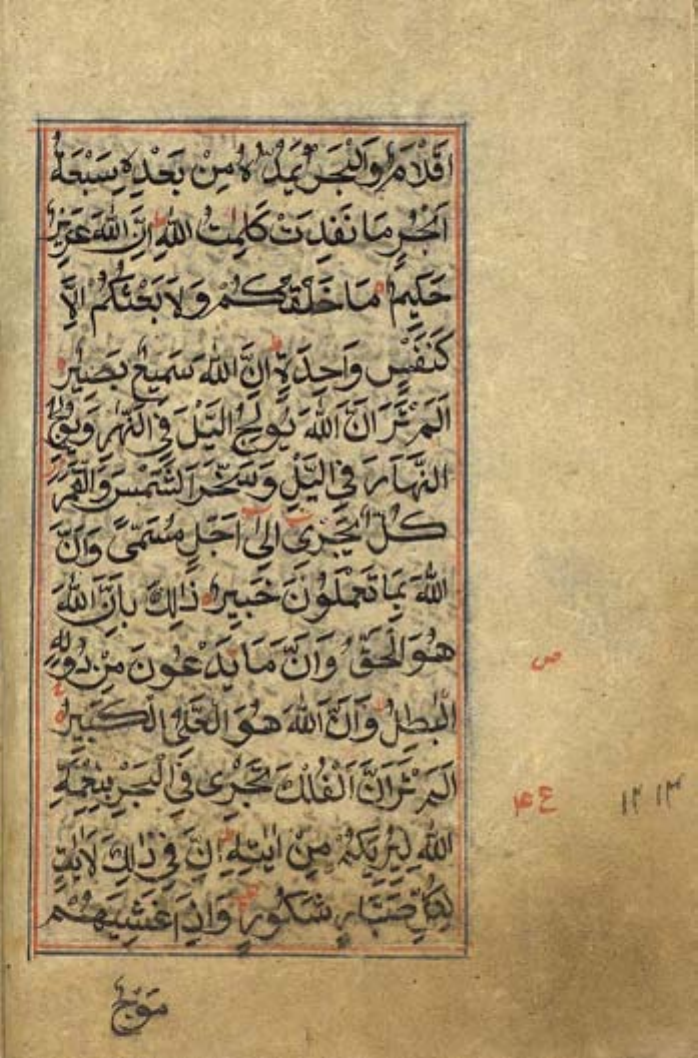 اَقْلَامٌ وَالْبَحْرُ يَمُدُّهُ مِنْ بَعْدِهِ سَبْعَةُ
اَبْحُرٍ مَا نَفِدَتْ كَلِمٰتُ اللهِ اِنَّ اللهَ عَزِيْزٌ
حَكِيْمٌ مَا خَلْقُكُمْ وَلَا بَعْثُكُمْ اِلَّا
كَنَفْسٍ وَاحِدَةٍ اِنَّ اللهَ سَمِيْعٌ بَصِيْرٌ
اَلَمْ تَرَ اَنَّ اللهَ يُوْلِجُ الَّيْلَ فِي النَّهَارِ وَيُوْلِجُ
النَّهَارَ فِي الَّيْلِ وَسَخَّرَ الشَّمْسَ وَالْقَمَرَ
كُلٌّ يَجْرِيْ اِلٰى اَجَلٍ مُسَمًّى وَاَنَّ
اللهَ بِمَا تَعْمَلُوْنَ خَبِيْرٌ ذٰلِكَ بِاَنَّ اللهَ
هُوَ الْحَقُّ وَاَنَّ مَا يَدْعُوْنَ مِنْ دُوْنِهِ
الْبٰطِلُ وَاَنَّ اللهَ هُوَ الْعَلِيُّ الْكَبِيْرُ
اَلَمْ تَرَ اَنَّ الْفُلْكَ تَجْرِيْ فِي الْبَحْرِ بِنِعْمَةِ
اللهِ لِيُرِيَكُمْ مِنْ اٰيٰتِهِ اِنَّ فِيْ ذٰلِكَ لَاٰيٰتٍ
لِكُلِّ صَبَّارٍ شَكُوْرٍ وَاِذَا غَشِيَهُمْ
مَوْجٌ
ص
ع ۴
۱۲ ۱۳